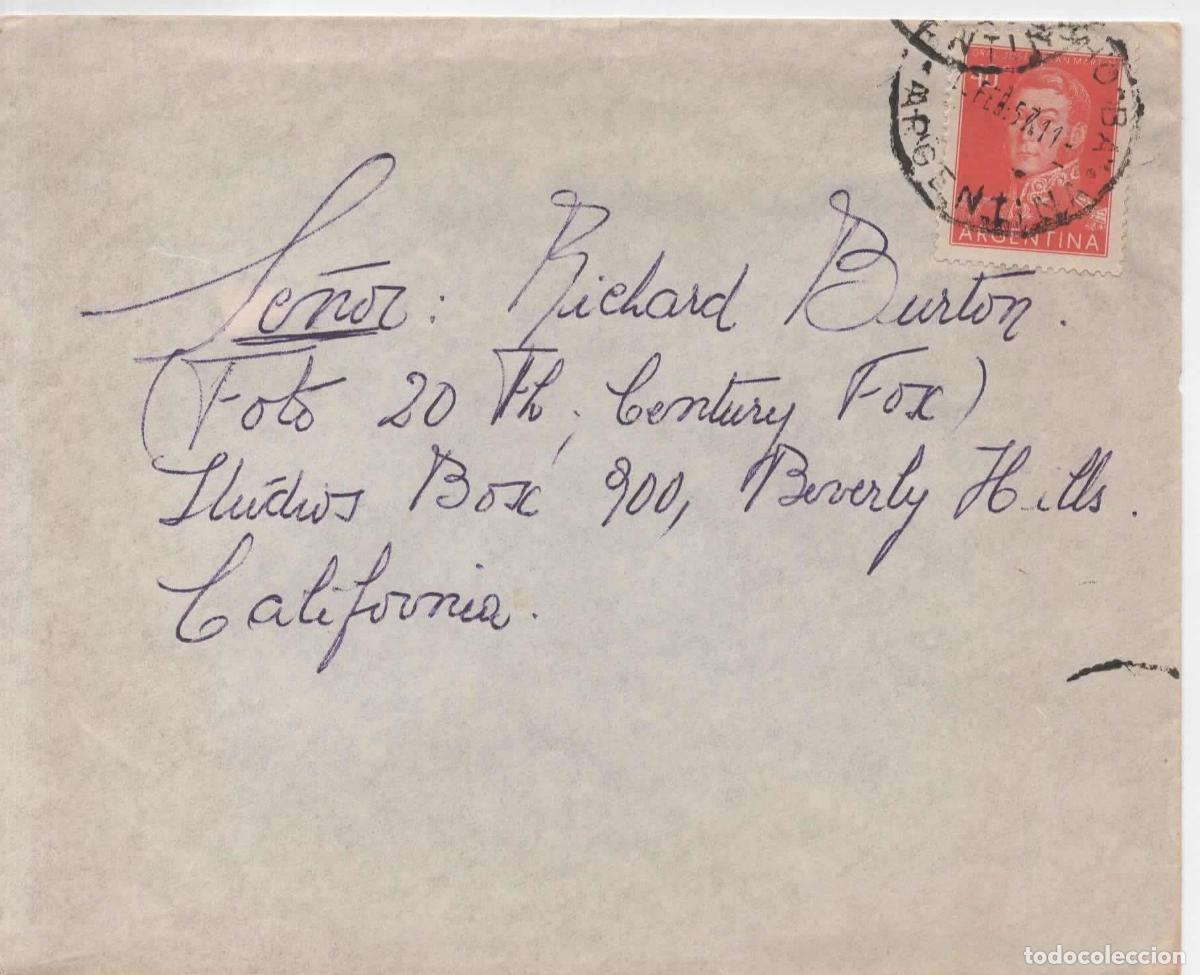 40
ARGENTINA
FEB.57.11
ARGENTINA
Señor: Richard Burton.
(Foto 20 Th, Century Fox)
Studios Box 900, Beverly Hills.
California.
todocoleccion